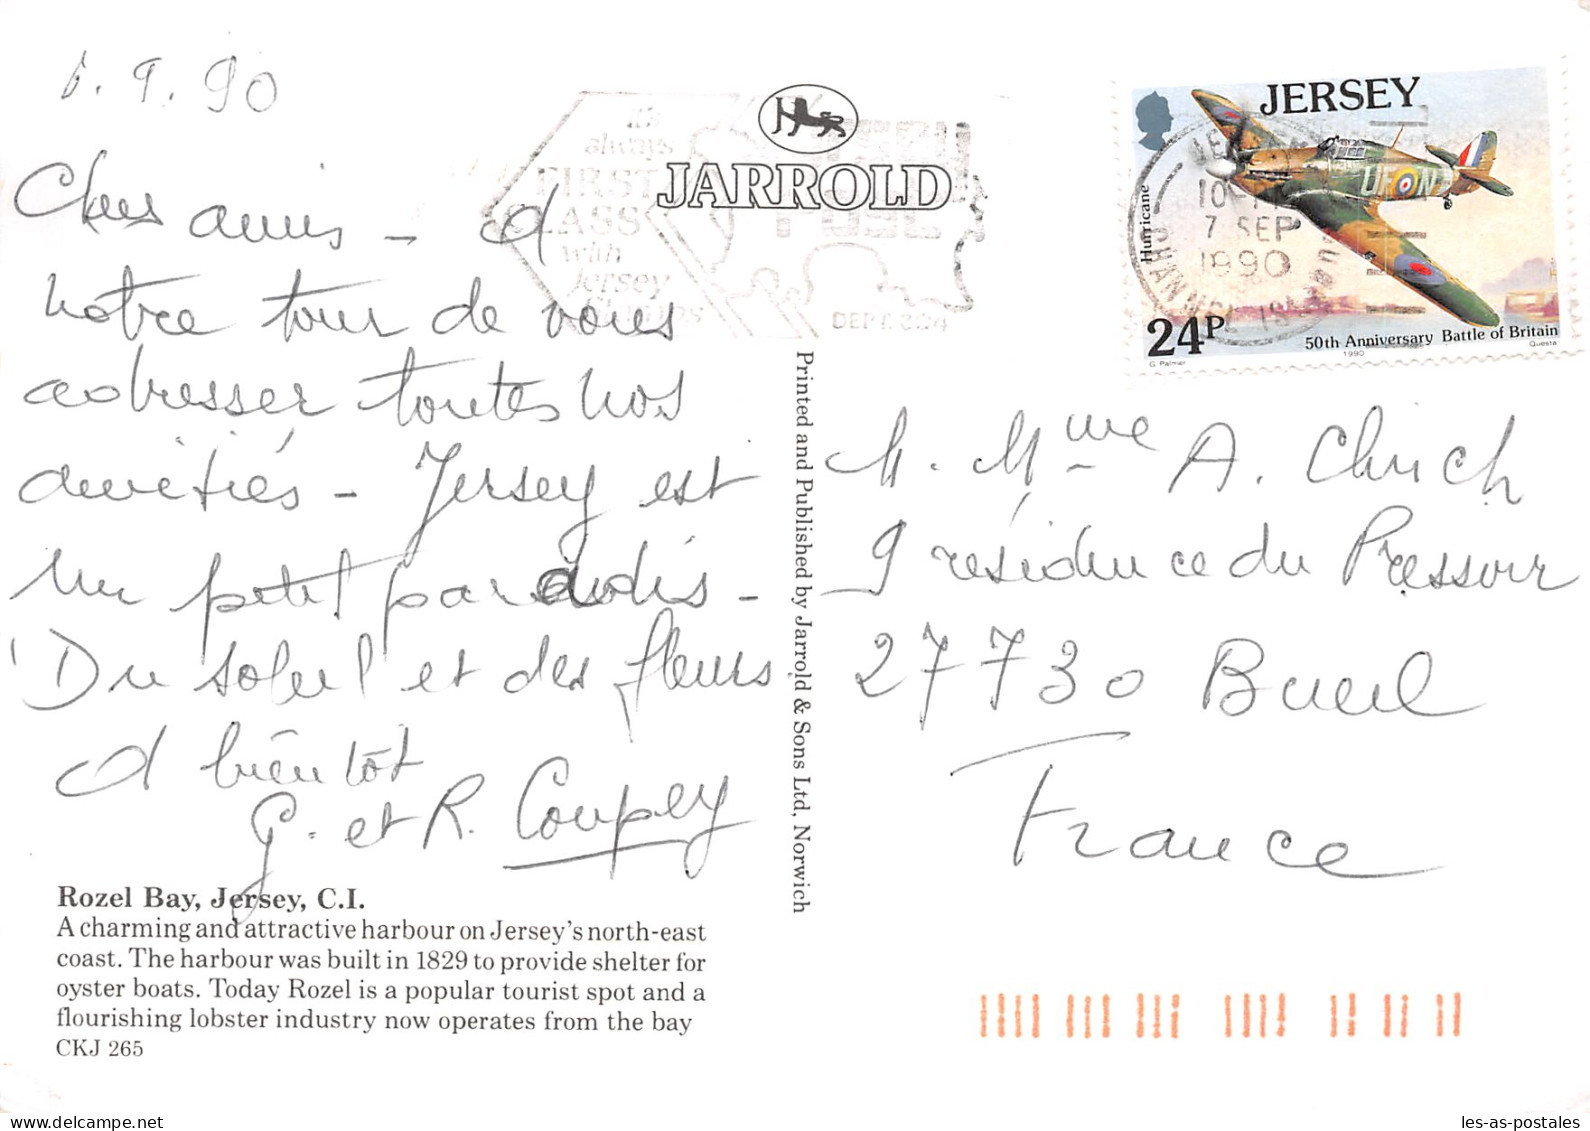 6.9.90
Chers amis - à
notre tour de vous
adresser toutes nos
amitiés - Jersey est
un petit paradis -
Du soleil et des fleurs
à bientôt
G. et R. Coupey
Rozel Bay, Jersey, C.I.
A charming and attractive harbour on Jersey's north-east
coast. The harbour was built in 1829 to provide shelter for
oyster boats. Today Rozel is a popular tourist spot and a
flourishing lobster industry now operates from the bay
CKJ 265
It's
always
FIRST
CLASS
with
Jersey
Stamps
JARROLD
Printed and Published by Jarrold & Sons Ltd, Norwich
JERSEY
Hurricane
UF N
7 SEP
1990
24P
50th Anniversary Battle of Britain
G. Palmer
1990
Questa
M. Mme A.
9 résidence du Pressoir
27730 Bueil
France
les-as-postales
delcampe.net